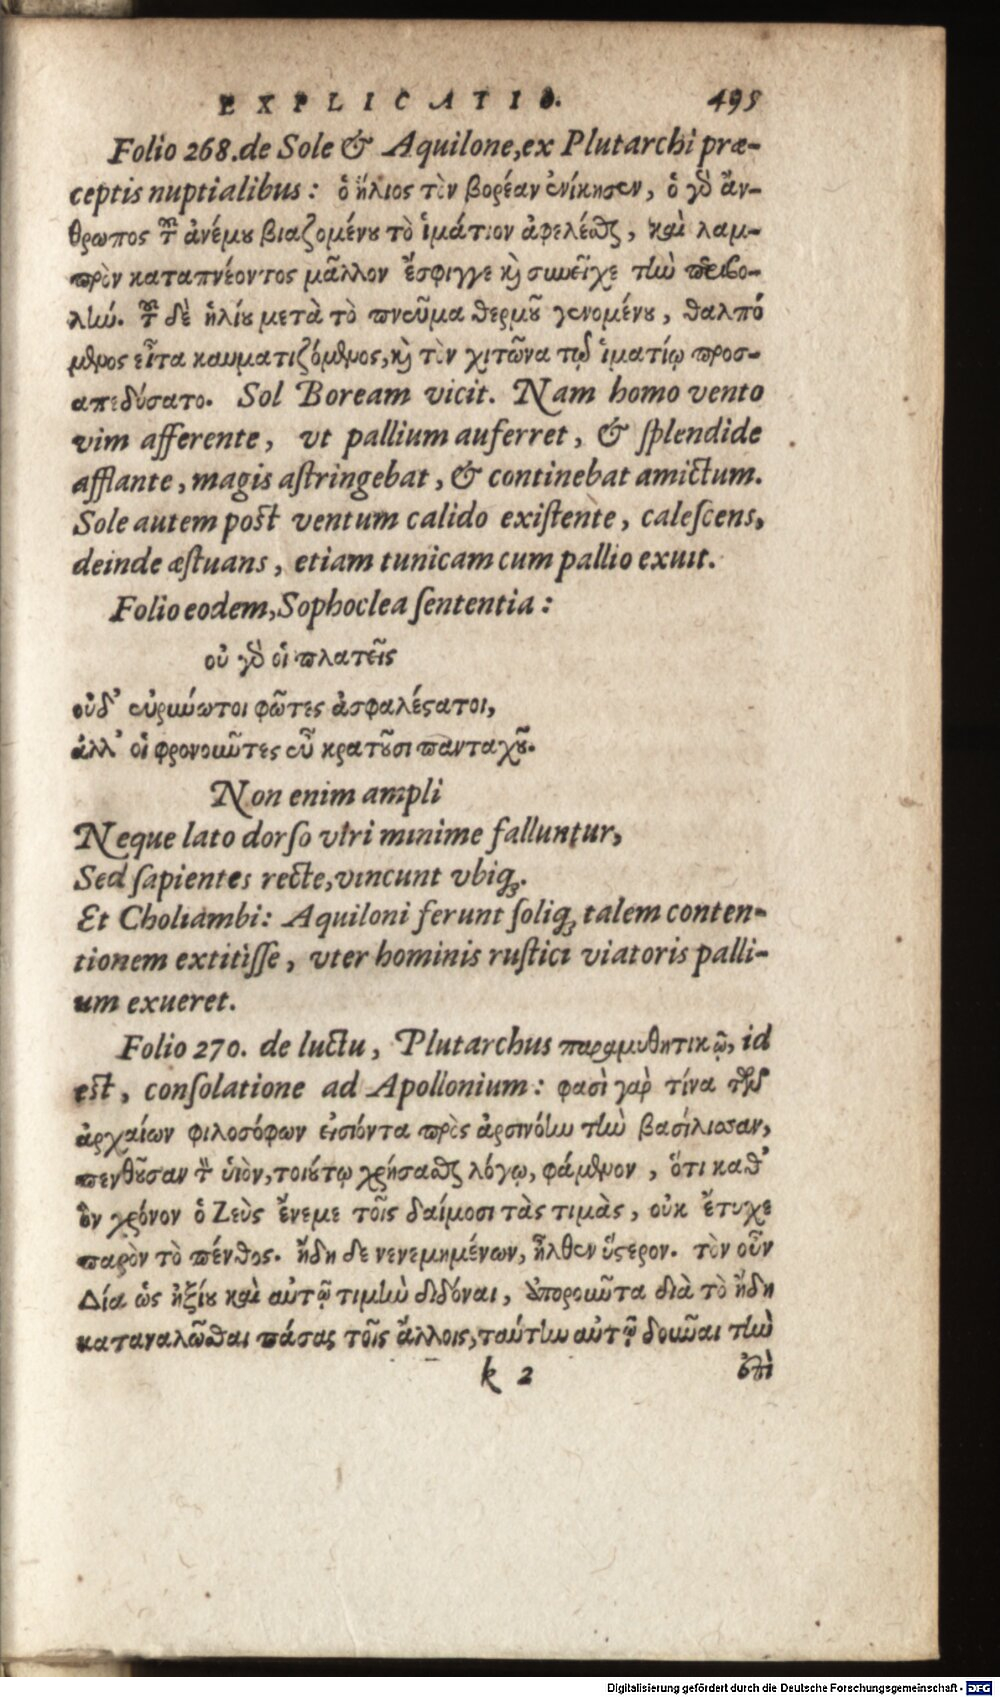 EXPLICATIO. 495
Folio 268. de Sole & Aquilone, ex Plutarchi præ-
ceptis nuptialibus: ὁ ἥλιος τὸν βορέαν ἐνίκησεν, ὁ γὸ ἄν-
θρωπος τοῦ ἀνέμου βιαζομένου τὸ ἱμάτιον ἀφελέσθαι, καὶ λαμ-
πρὸν καταπνέοντος μᾶλλον ἔσφιγγε καὶ συνεῖχε τὴν περιβο-
λήν. τοῦ δὲ ἡλίου μετὰ τὸ πνεῦμα θερμοῦ γενομένου, θαλπό
μενος εἶτα καυματιζόμενος, καὶ τὸν χιτῶνα τῷ ἱματίῳ προσ-
απεδύσατο. Sol Boream vicit. Nam homo vento
vim afferente, vt pallium auferret, & ſplendide
afflante, magis aſtringebat, & continebat amictum.
Sole autem poſt ventum calido exiſtente, caleſcens,
deinde æſtuans, etiam tunicam cum pallio exuit.
Folio eodem, Sophoclea ſententia:
οὐ γὸ οἱ πλατεῖς
οὐδ᾽ εὐρύνωτοι φῶτες ἀσφαλέστατοι,
ἀλλ᾽ οἱ φρονοῦντες εὖ κρατοῦσι πανταχοῦ.
Non enim ampli
Neque lato dorſo viri minime falluntur,
Sed ſapientes recte, vincunt vbiq;.
Et Choliambi: Aquiloni ferunt ſoliq; talem conten-
tionem extitiſſe, vter hominis ruſtici viatoris palli-
um exueret.
Folio 270. de luctu, Plutarchus παραμυθητικῷ, id
eſt, conſolatione ad Apollonium: φασὶ γαρ τίνα τῶν
ἀρχαίων φιλοσόφων εἰσιόντα πρὸς ἀρσινόην τὴν βασίλισσαν,
πενθοῦσαν τὸν ὑιὸν, τοιούτῳ χρήσασθαι λόγῳ, φάμενον, ὅτι καθ᾽
ὃν χρόνον ὁ Ζεὺς ἔνεμε τοῖς δαίμοσι τὰς τιμὰς, οὐκ ἔτυχε
παρὸν τὸ πένθος. ἤδη δε νενεμημένων, ἦλθεν ὕστερον. τὸν οὖν
Δία ὡς ἠξίου καὶ αὐτῷ τιμὴν διδόναι, ἀποροῦντα διὰ τὸ ἤδη
καταναλῶσθαι πάσας τοῖς ἄλλοις, ταύτην αὐτῷ δοῦναι τὴν
k 2 ἐπὶ
Digitalisierung gefördert durch die Deutsche Forschungsgemeinschaft - DFG